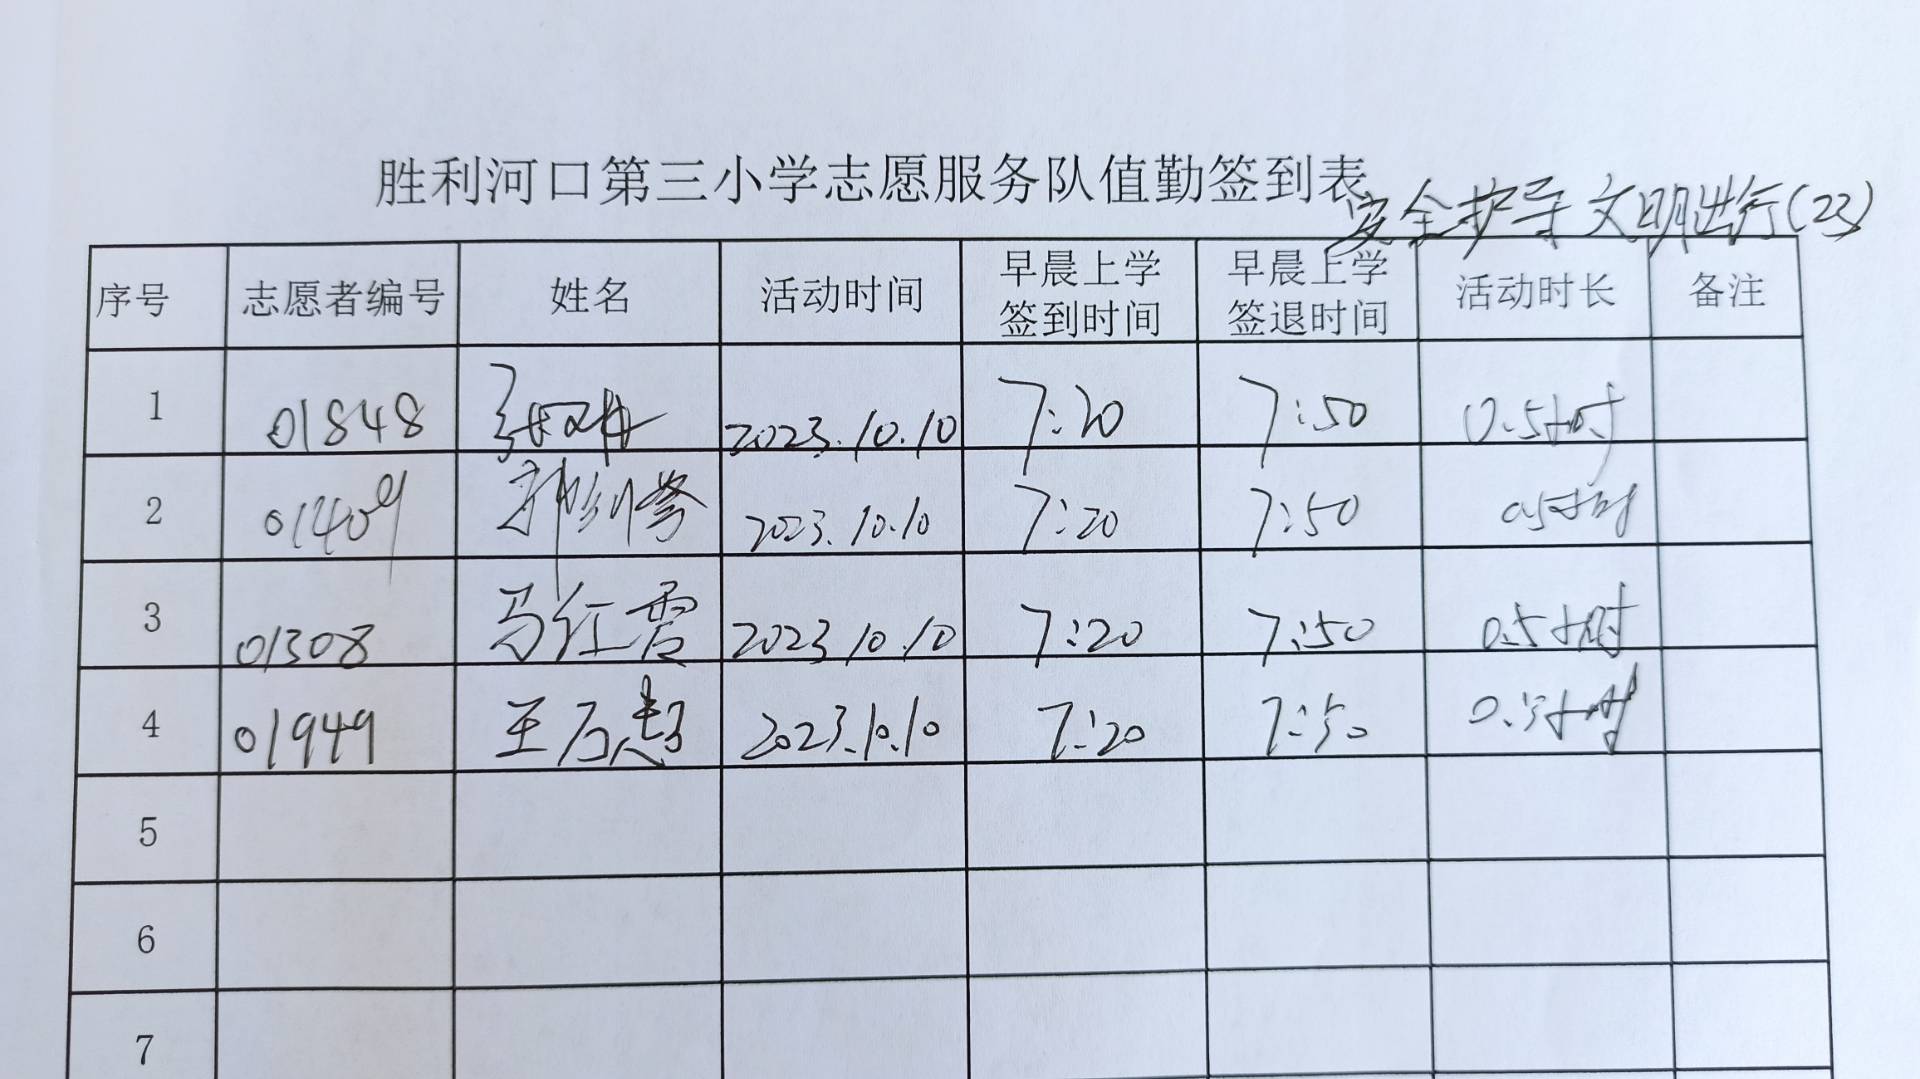 胜利河口第三小学志愿服务队值勤签到表
安全护导 文明出行(23)
序号 志愿者编号 姓名 活动时间 早晨上学签到时间 早晨上学签退时间 活动时长 备注
1 01848 2023.10.10 7:20 7:50 0.5小时
2 01409 2023.10.10 7:20 7:50 0.5小时
3 01308 马红霞 2023.10.10 7:20 7:50 0.5小时
4 01949 2023.10.10 7:20 7:50 0.5小时
5
6
7